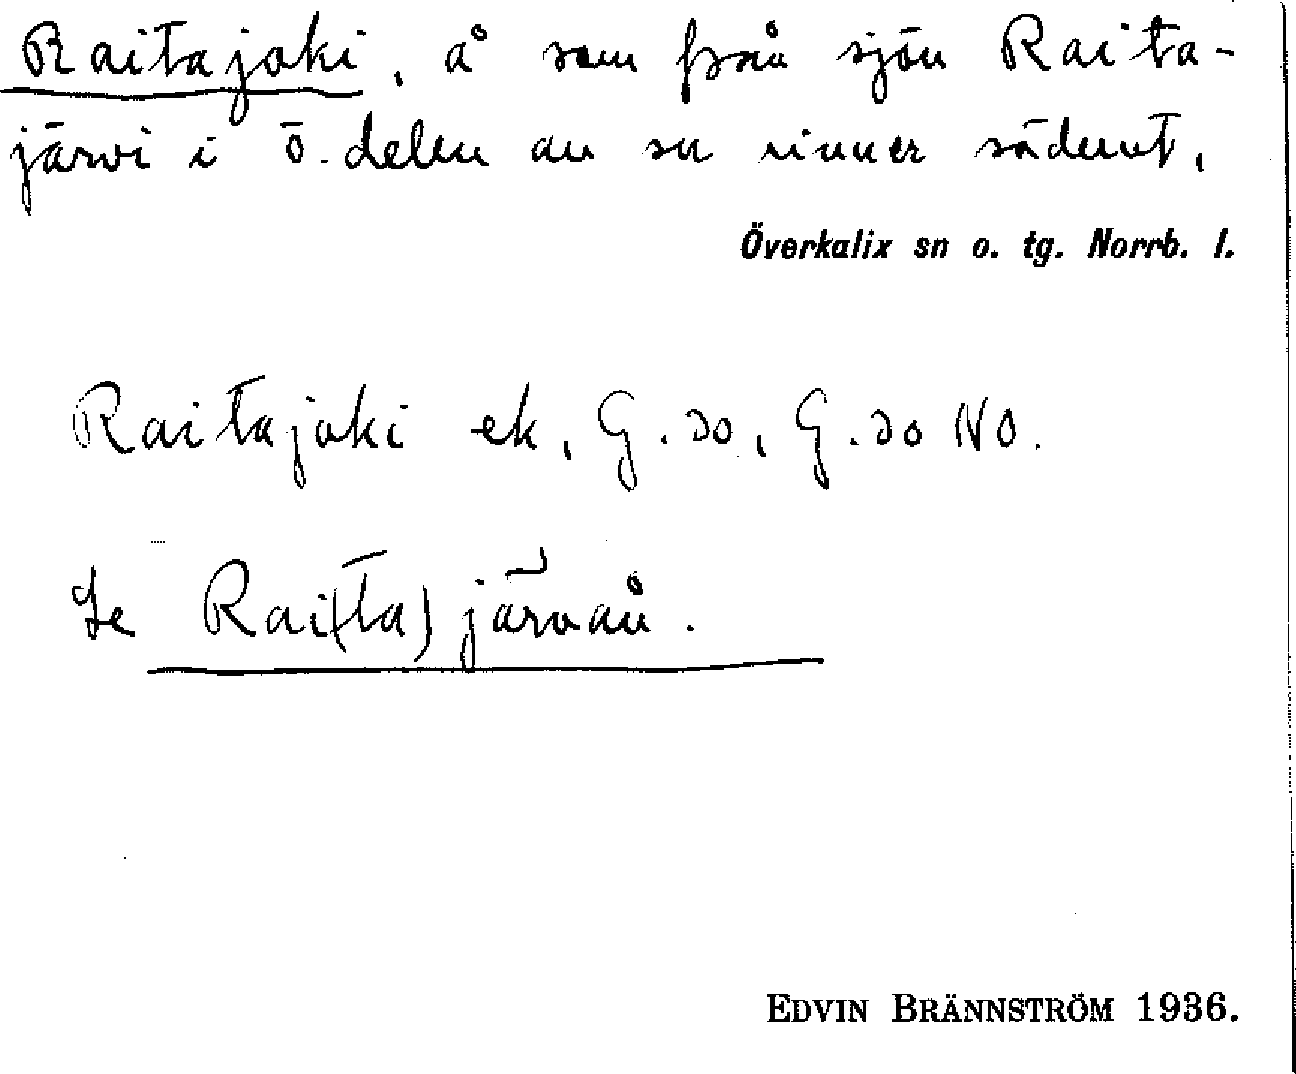 Raitajoki, å som från sjön Raita-
järvi i ö. delen av sn rinner söderut,
Överkalix sn o. tg. Norrb. l.
Raitajoki ek, G. so, G. so NO.
Se Rai(ta)järvån.
EDVIN BRÄNNSTRÖM 1936.